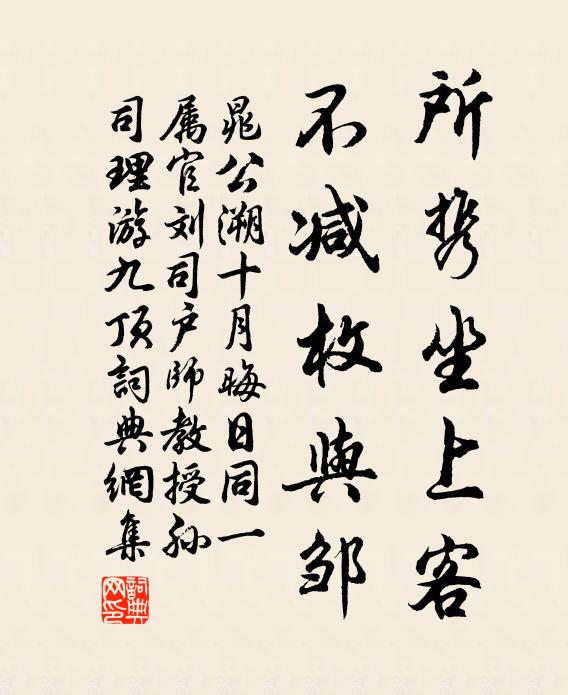 所携坐上客
不减枚與邹
晁公溯十月晦日同一
属官刘司户師教授孙
司理游九顶詞典網集